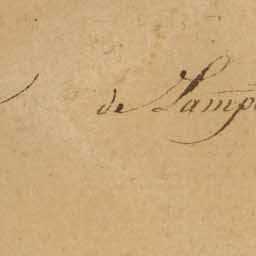 de Lamp